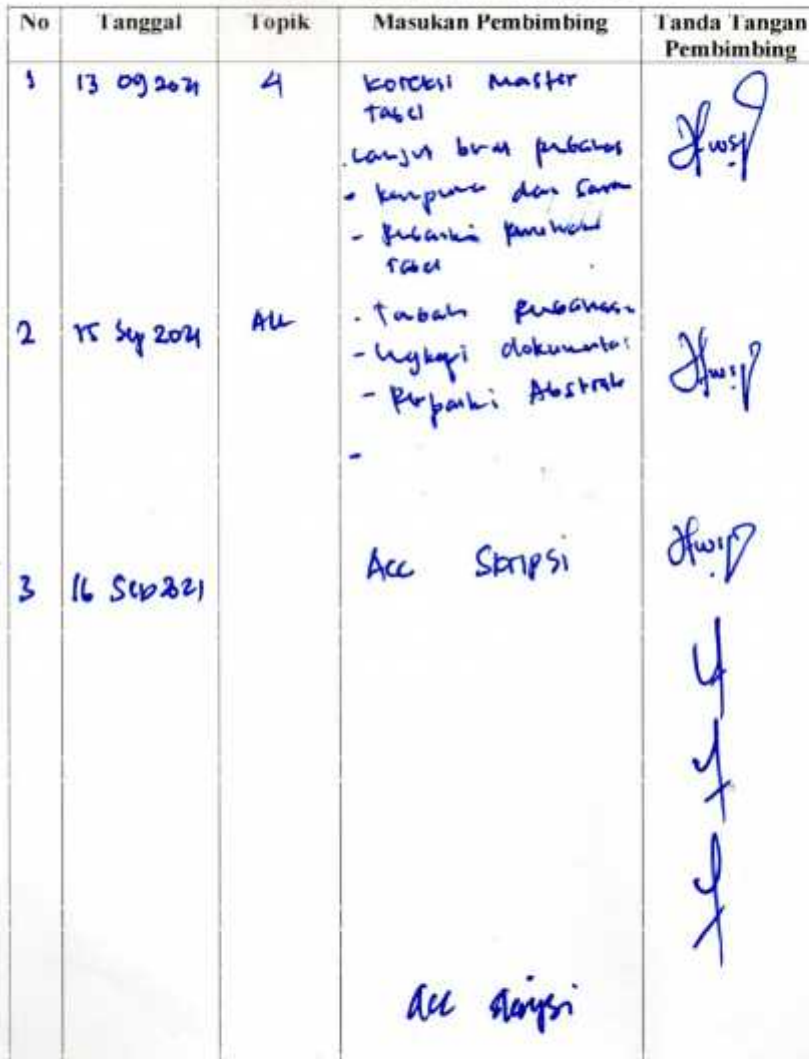 No Tanggal Topik Masukan Pembimbing Tanda Tangan Pembimbing
1 13 09 2021 4 Koreksi Master
Tabel
Lanjut buat
- dan Saran
- Perbaiki
Tabel
2 15 Sep 2021 All - Tambah
- Lengkapi dokumentasi
- Perbaiki Abstrak
-
3 16 Sep 2021 Acc Skripsi
Acc Skripsi